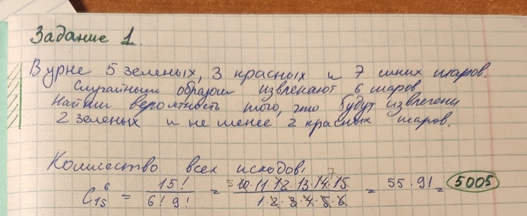 Задание 1.
В урне 5 зеленых, 3 красных и 7 синих шаров.
Случайным образом извлекают 6 шаров.
Найти вероятность того, что будут извлечены
2 зеленых и не менее 2 красных шаров.
Количество всех исходов:
C₁₅⁶ = 15! / 6! 9! = 10·11·12·13·14·15 / 1·2·3·4·5·6 = 55·91 = 5005